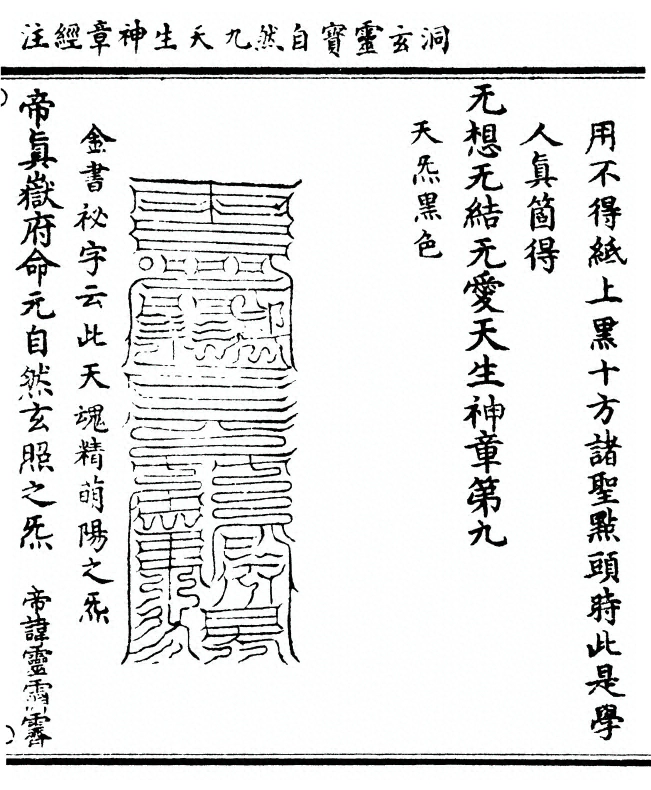 洞玄靈寶自然九天生神章經注
用不得紙上黑十方諸聖點頭時此是學
人眞箇得
无想无結无愛天生神章第九
天炁黑色
金書祕字云此天魂精萌陽之炁
帝眞嶽府命元自然玄照之炁 帝諱靈